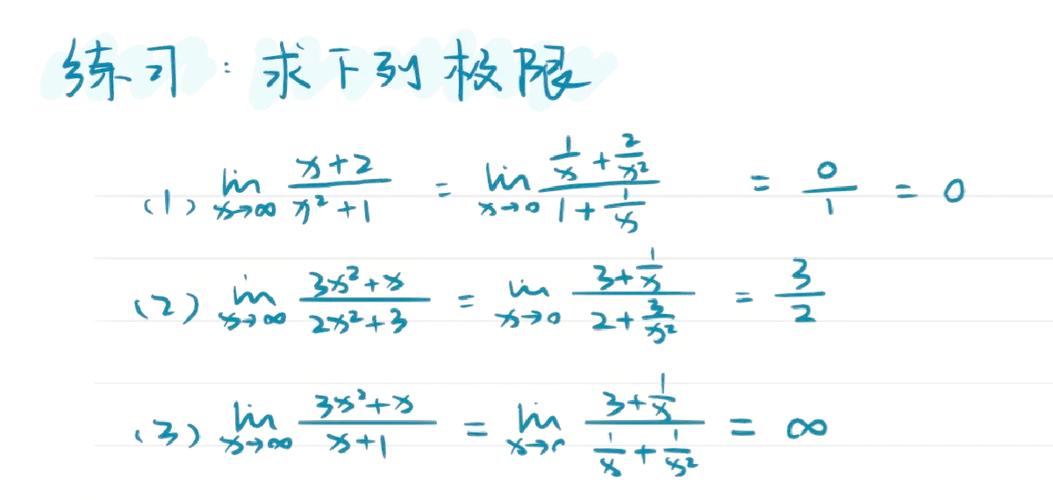 练习：求下列极限
(1) lim x→∞ (x+2)/(x²+1) = lim x→0 (1/x + 2/x²)/(1 + 1/x) = 0/1 = 0
(2) lim x→∞ (3x²+x)/(2x²+3) = lim x→0 (3 + 1/x)/(2 + 3/x²) = 3/2
(3) lim x→∞ (3x²+x)/(x+1) = lim x→0 (3 + 1/x)/(1/x + 1/x²) = ∞